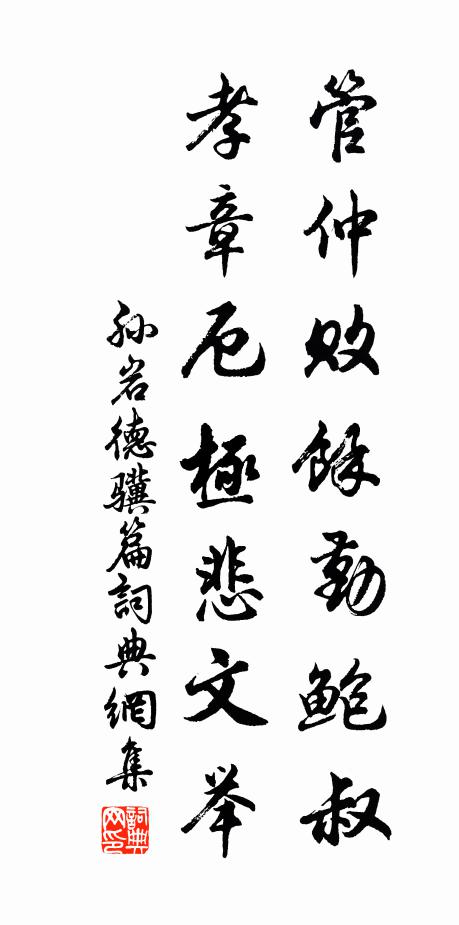 管仲败餘勤鲍叔
孝章厄極悲文举
孙岩德骥篇詞典網集
詞典
网印